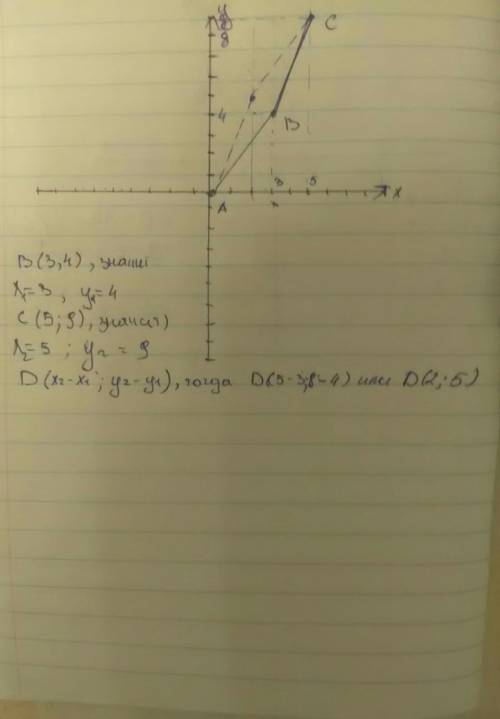 y
9
8
C
4
B
3 5
A x
B(3,4), значит
x₁=3, y₁=4
C(5;9), значит)
x₂=5; y₂=9
D(x₂-x₁; y₂-y₁), тогда D(5-3;9-4) или D(2;5)